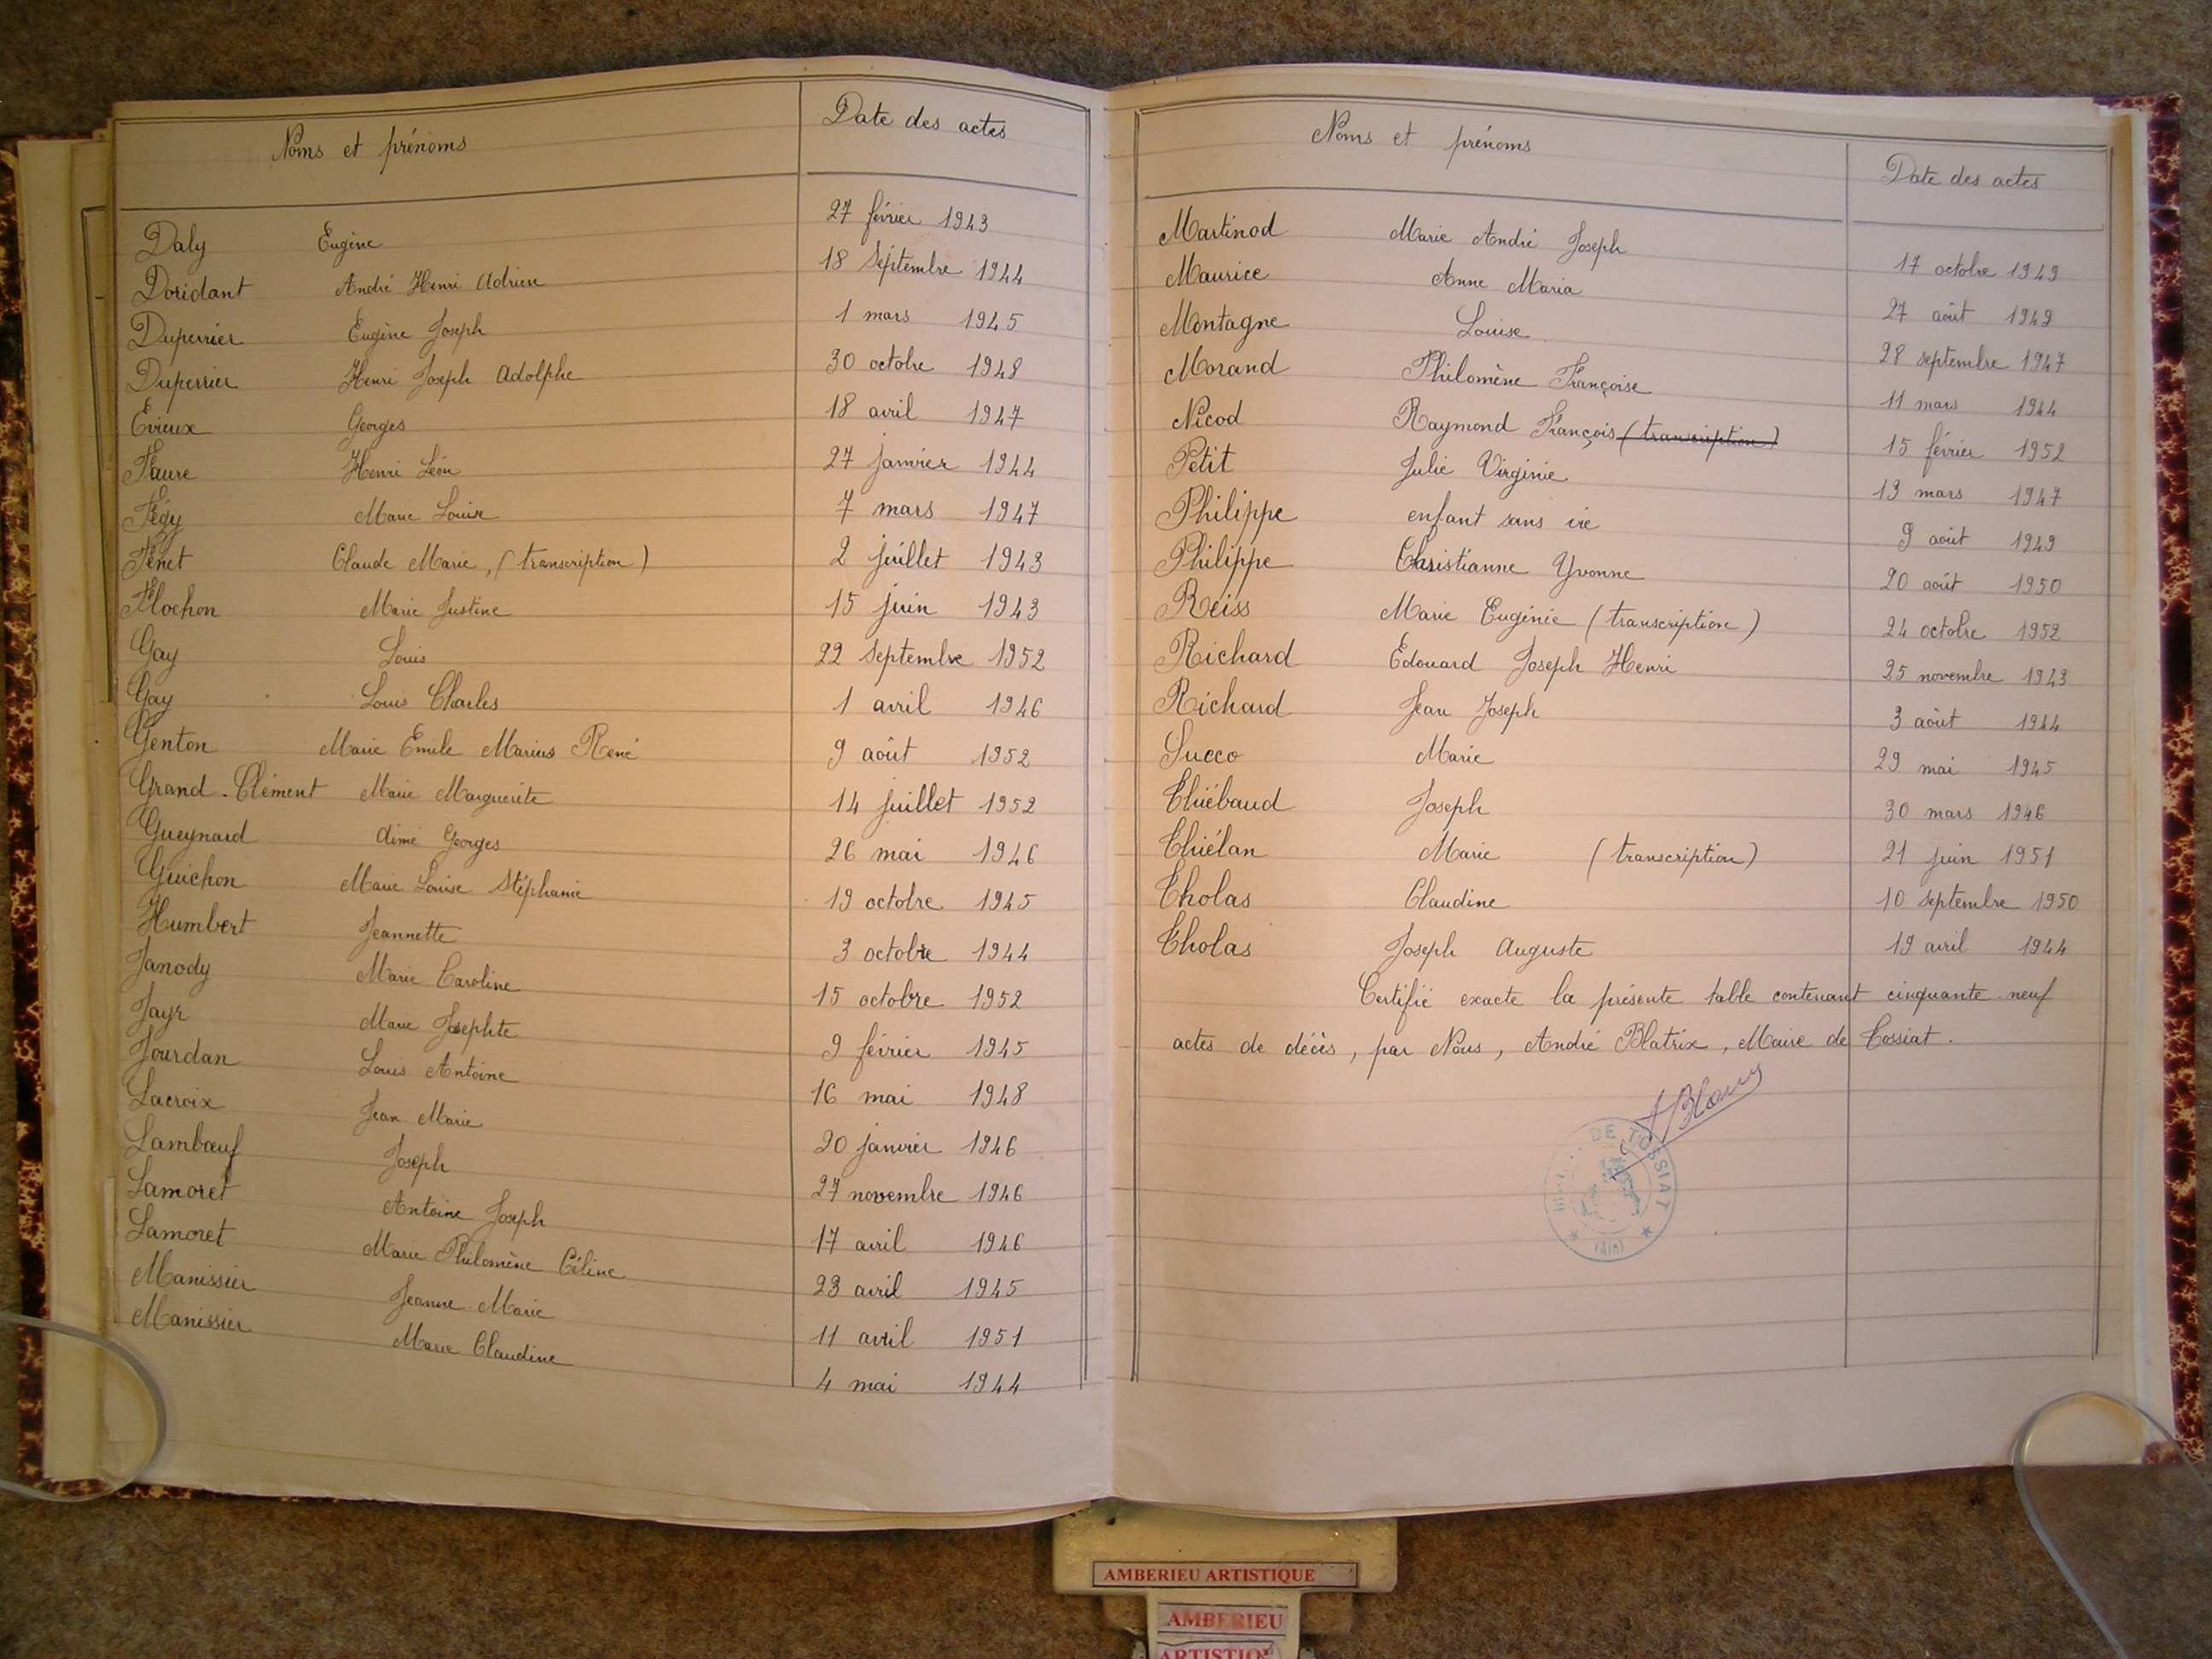 Noms et prénoms Date des actes
Daly Eugène 27 février 1943
Doridant André Henri Adrien 18 septembre 1944
Duperrier Eugène Joseph 1 mars 1945
Duperrier Henri Joseph Adolphe 30 octobre 1948
Evieux Georges 18 avril 1947
Faure Henri Léon 27 janvier 1944
Fégy Marie Louise 7 mars 1947
Fenet Claude Marie, (transcription) 2 juillet 1943
Flochon Marie Justine 15 juin 1943
Gay Louis 22 septembre 1952
Gay Louis Charles 1 avril 1946
Genton Marie Emile Marius René 9 août 1952
Grand-Clément Marie Marguerite 14 juillet 1952
Gueynard Aimé Georges 26 mai 1946
Guichon Marie Louise Stéphanie 19 octobre 1945
Humbert Jeannette 3 octobre 1944
Janody Marie Caroline 15 octobre 1952
Jayr Marie Josephte 9 février 1945
Jourdan Louis Antoine 16 mai 1948
Lacroix Jean Marie 20 janvier 1946
Lambœuf Joseph 27 novembre 1946
Lamoret Antoine Joseph 17 avril 1946
Lamoret Marie Philomène Céline 23 avril 1945
Manissier Jeanne Marie 11 avril 1951
Manissier Marie Claudine 4 mai 1944
Noms et prénoms Date des actes
Martinod Marie André Joseph 17 octobre 1949
Maurice Anne Maria 27 août 1949
Montagne Louise 28 septembre 1947
Morand Philomène Françoise 11 mars 1944
Nicod Raymond François (transcription) 15 février 1952
Petit Julie Virginie 13 mars 1947
Philippe enfant sans vie 9 août 1949
Philippe Christianne Yvonne 20 août 1950
Reiss Marie Eugénie (transcription) 24 octobre 1952
Richard Edouard Joseph Henri 25 novembre 1943
Richard Jean Joseph 3 août 1944
Succo Marie 29 mai 1945
Thiébaud Joseph 30 mars 1946
Thiélan Marie (transcription) 21 juin 1951
Tholas Claudine 10 septembre 1950
Tholas Joseph Auguste 19 avril 1944
Certifié exacte la présente table contenant cinquante-neuf
actes de décès, par Nous, André Blatrix, Maire de Tossiat.
DE TOSSIAT
(Ain)
AMBERIEU ARTISTIQUE
AMBERIEU